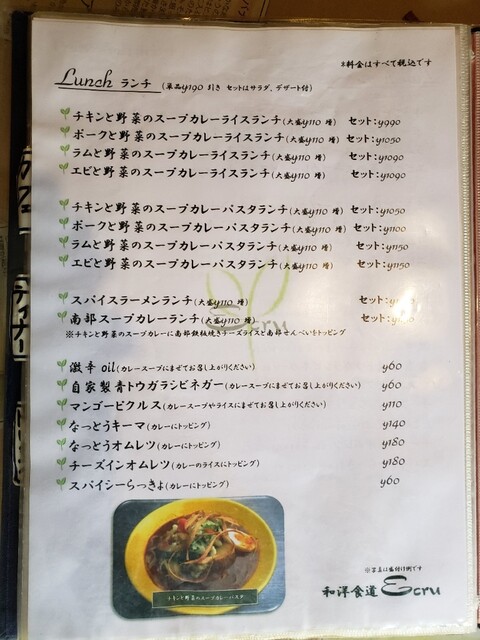 *料金はすべて税込です
Lunch ランチ (単品y190 引き セットはサラダ、デザート付)
チキンと野菜のスープカレーライスランチ(大盛y110 増) セット:y990
ポークと野菜のスープカレーライスランチ(大盛y110 増) セット:y1050
ラムと野菜のスープカレーライスランチ(大盛y110 増) セット:y1090
エビと野菜のスープカレーライスランチ(大盛y110 増) セット:y1090
チキンと野菜のスープカレーパスタランチ(大盛y110 増) セット:y1050
ポークと野菜のスープカレーパスタランチ(大盛y110 増) セット:y1100
ラムと野菜のスープカレーパスタランチ(大盛y110 増) セット:y1150
エビと野菜のスープカレーパスタランチ(大盛y110 増) セット:y1150
スパイスラーメンランチ(大盛y110 増) セット:
南部スープカレーランチ(大盛y110 増) セット:
※チキンと野菜のスープカレーに南部鉄板焼きチーズライスと南部せんべいをトッピング
激辛 oil(カレースープにまぜてお召し上がりください) y60
自家製青トウガラシビネガー(カレースープにまぜてお召し上がりください) y60
マンゴーピクルス(カレースープやライスにまぜてお召し上がりください) y110
なっとうキーマ(カレーにトッピング) y140
なっとうオムレツ(カレーにトッピング) y180
チーズインオムレツ(カレーのライスにトッピング) y180
スパイシーらっきょ(カレーにトッピング) y60
チキンと野菜のスープカレーパスタ
※写真は盛付け例です
和洋食道 Ecru